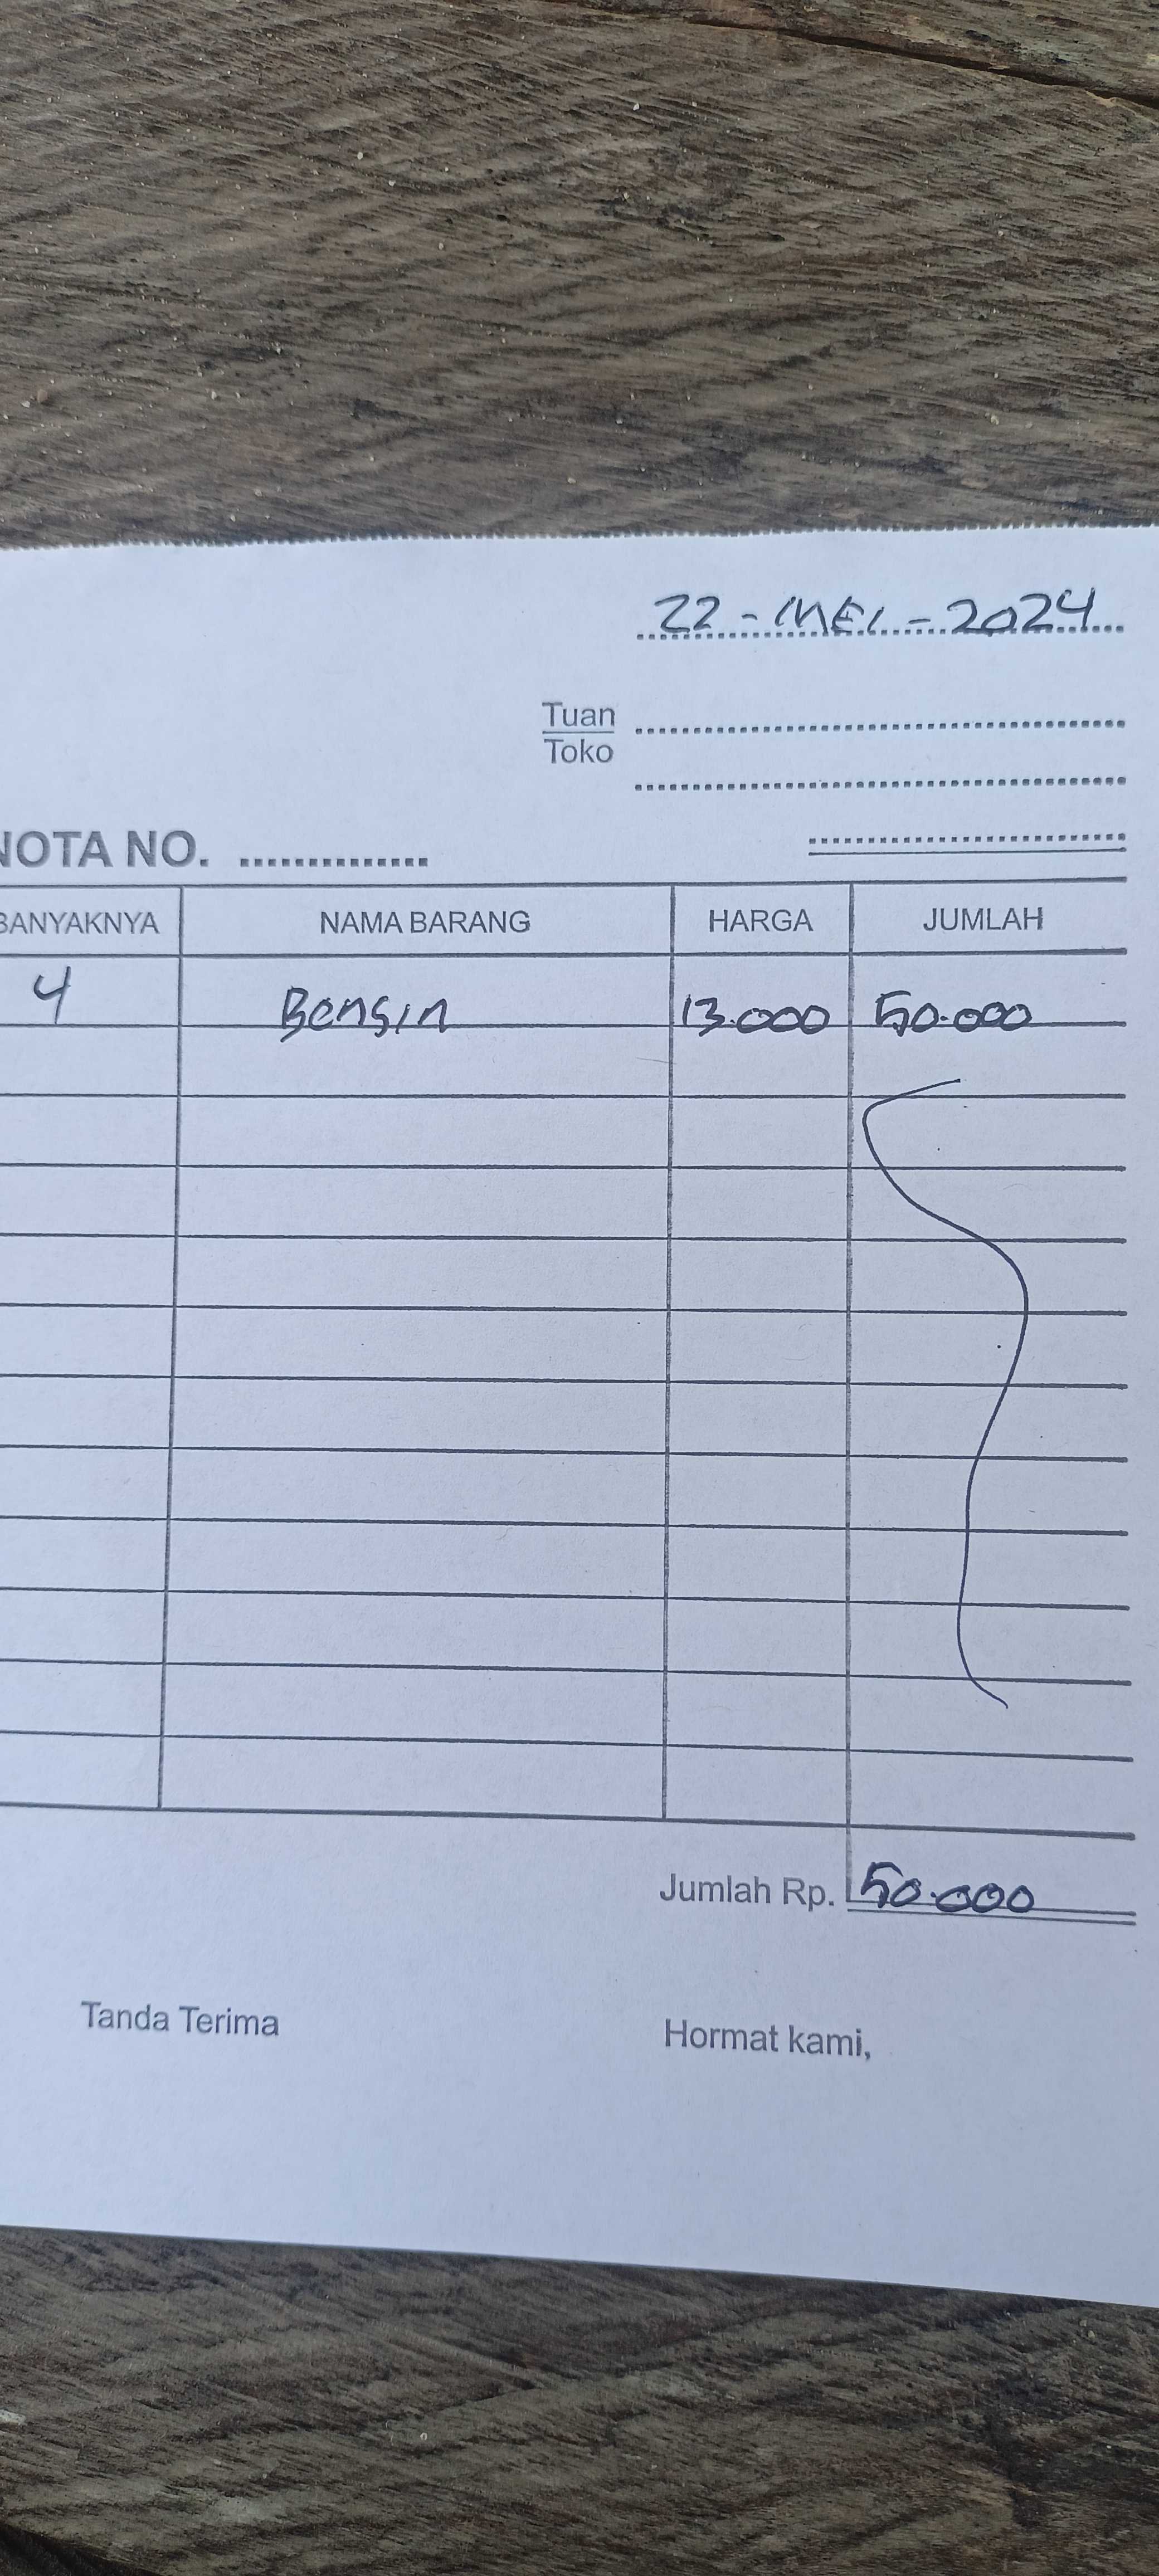 22 - MEI - 2024
Tuan
Toko
NOTA NO. ..............
BANYAKNYA NAMA BARANG HARGA JUMLAH
4 Bensin 13.000 50.000
Jumlah Rp. 50.000
Tanda Terima Hormat kami,